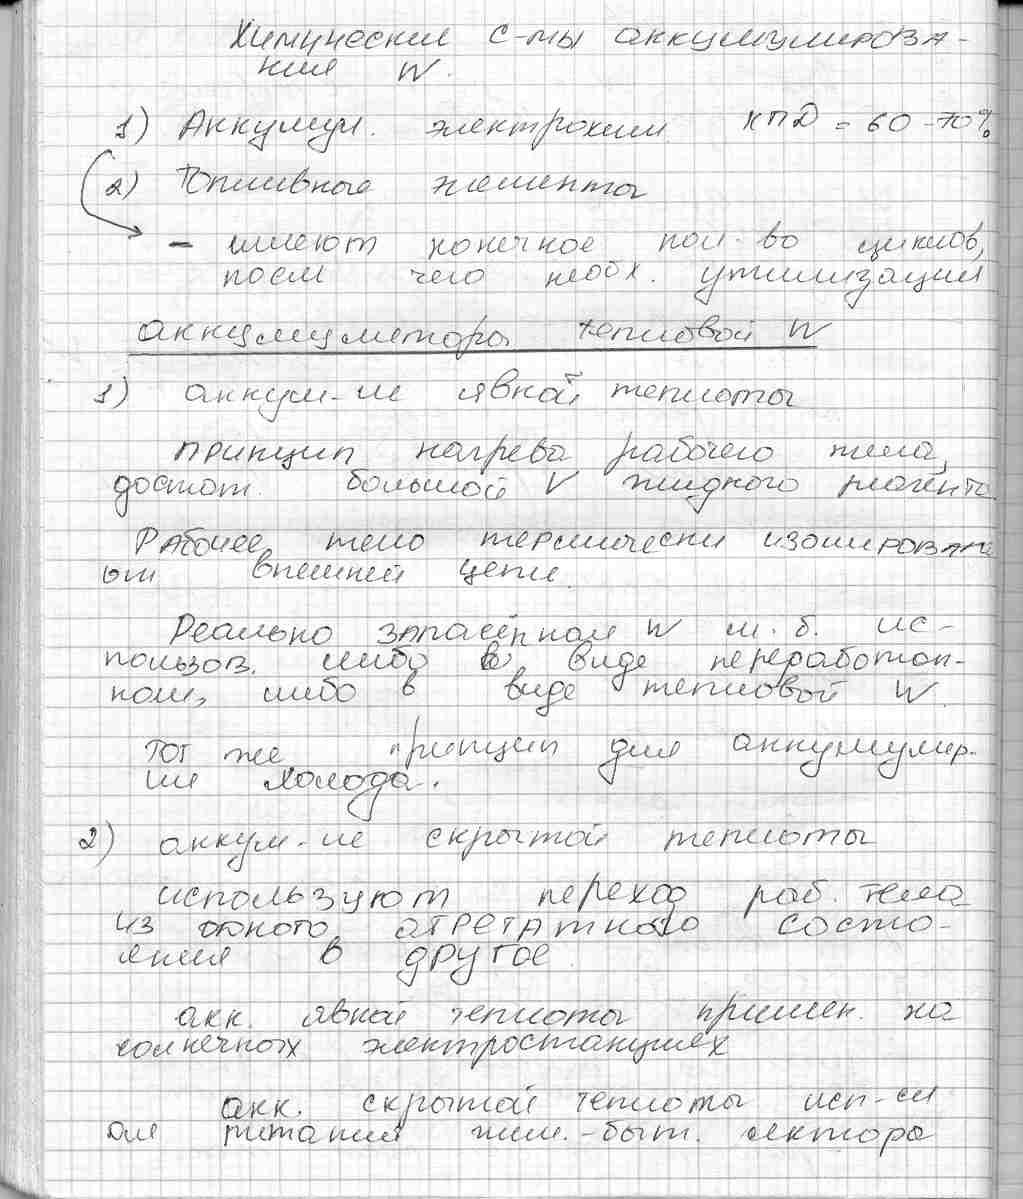 Химические с-мы аккумулирова-
ния W.
1) Аккумул. электрохим. КПД = 60-70%
2) Топливные элементы
- имеют конечное кол-во циклов,
после чего необх. утилизация
аккумуляторы тепловой W
1) аккум-ие явной теплоты
принцип нагрева рабочего тела,
достат. большой V жидкого реагента
Рабочее тело термически изолировано
от внешней цепи.
Реально запасённая W м.б. ис-
пользов. либо в виде переработан-
ном, либо в виде тепловой W.
Тот же принцип для аккумулир-
ия холода.
2) аккум-ие скрытой теплоты
используют переход раб. тела
из одного агрегатного состо-
яния в другое.
акк. явной теплоты примен. на
солнечных электростанциях
акк. скрытой теплоты исп-ся
для питания жил.-быт. сектора